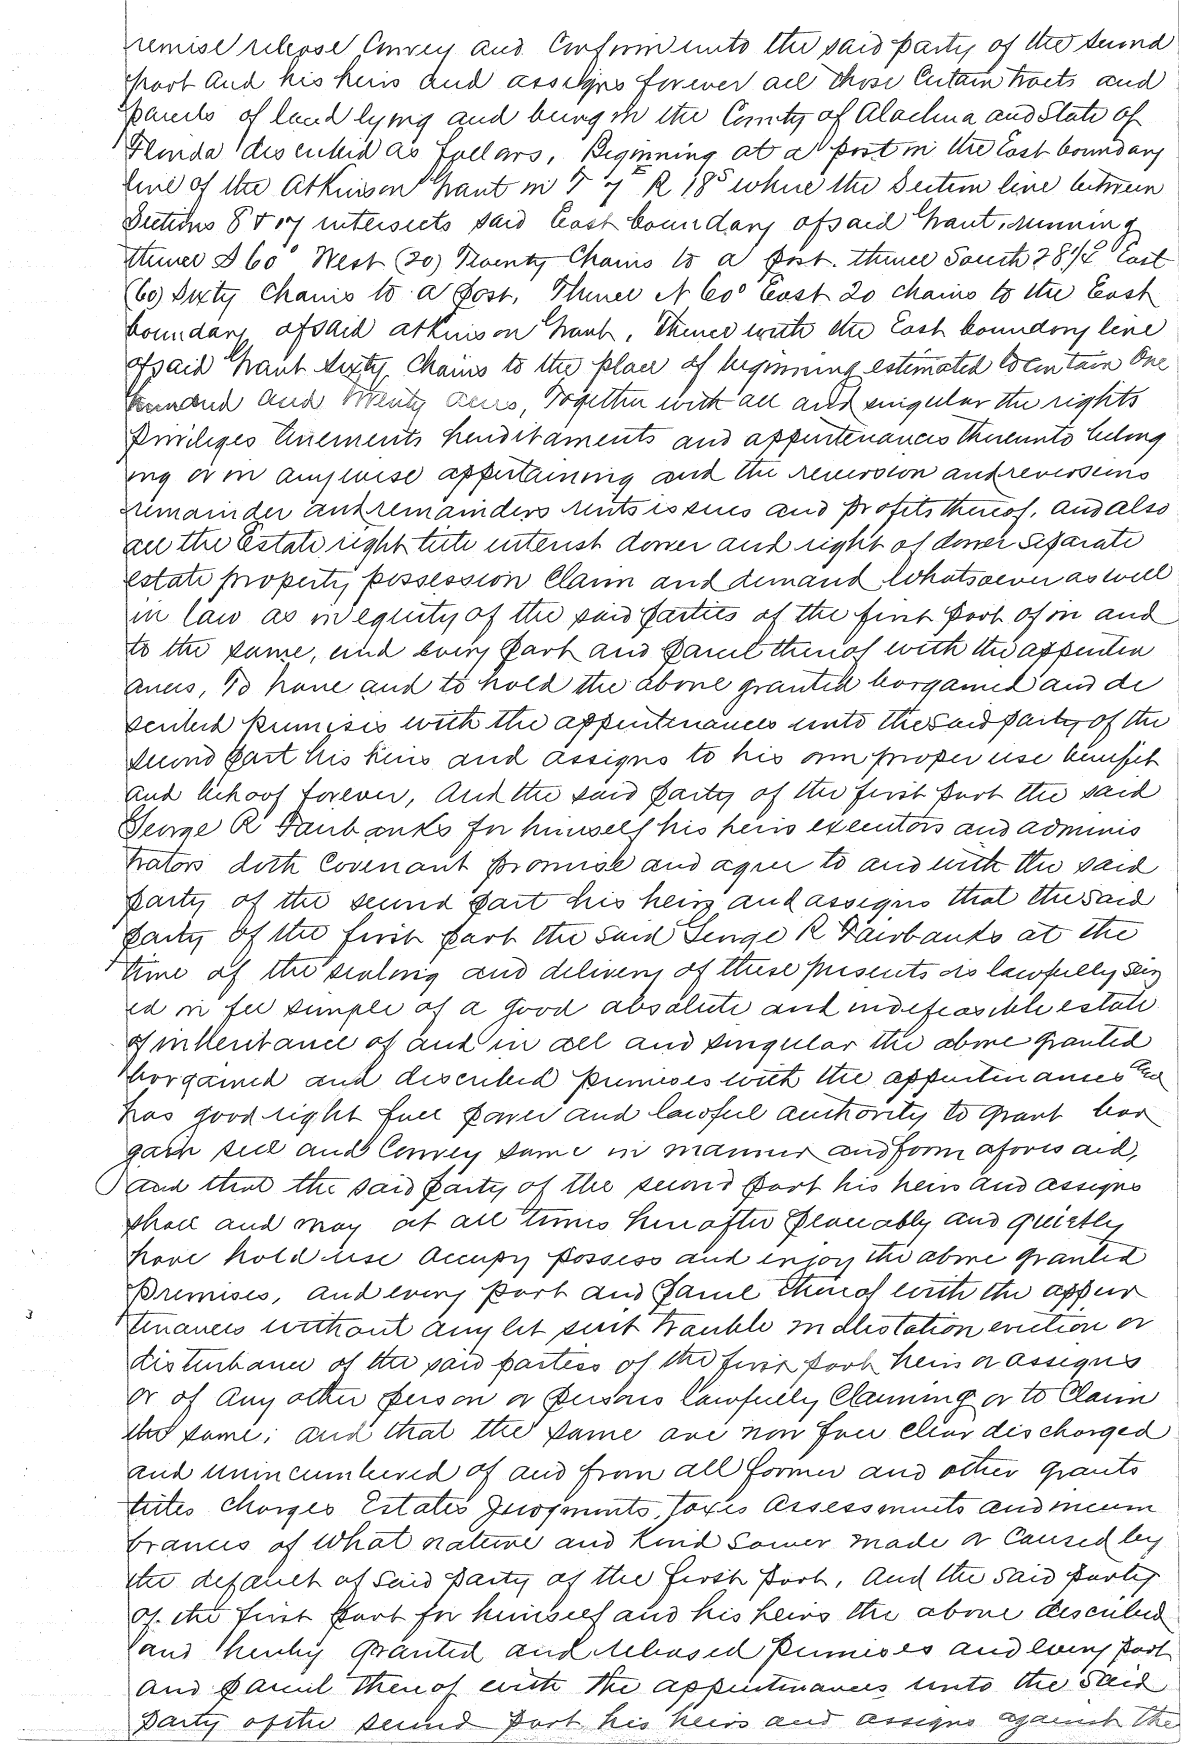 remise release Convey and Confirm unto the said party of the second
part and his heirs and assigns forever all those Certain tracts and
parcels of land lying and being in the County of Alachua and State of
Florida described as follows, Beginning at a post in the East boundary
line of the Atkinson Grant in T 7 E R 18 S where the Section line between
Sections 8 & 17 intersects said East boundary of said Grant, running
thence S 60° West (20) Twenty Chains to a post. thence South 28 1/2° East
(60) Sixty Chains to a post, Thence N 60° East 20 chains to the East
boundary of said atkinson Grant, Thence with the East boundary line
of said Grant Sixty Chains to the place of beginning estimated to contain One
hundred and twenty acres, Together with all and singular the rights
Privileges tinements herditaments and appurtenances thereunto belong
ing or in anywise appertaining and the reversion and reversions
remainder and remainders rents issues and profits thereof, and also
all the Estate right title interest dower and right of dower Separate
estate property possession Claim and demand whatsoever as well
in law as in equity of the said parties of the first part of in and
to the same, and every part and parcel thereof with the appurten
ances, To have and to hold the above granted bargained and de
scribed premises with the appurtenances unto the said party of the
second part his heirs and assigns to his own proper use benefit
and behoof forever, And the said party of the first part the said
George R Fairbanks for himself his heirs executors and adminis
trators doth Covenant promise and agree to and with the said
party of the second part his heirs and assigns that the said
party of the first part the said George R Fairbanks at the
time of the sealing and delivery of these presents is lawfully seiz
ed in fee simple of a good absolute and indefeasible estate
of inheritance of and in all and singular the above granted
bargained and described premises with the appurtenances and
has good right full power and lawful authority to grant bar
gain sell and Convey same in manner and form aforesaid,
and that the said party of the second part his heirs and assigns
shall and may at all times hereafter peaceably and quietly
have hold use occupy possess and enjoy the above granted
Premises, and every part and parcel thereof with the appur
tenances without any let suit trouble molestation eviction or
disturbance of the said parties of the first part heirs or assigns
or of any other person or persons lawfully Claiming or to Claim
the same; and that the same are now free clear discharged
and unincumbered of and from all former and other grants
titles charges Estates Judgments, taxes Assessments and incum
brances of what nature and Kind Soever made or Caused by
the default of said party of the first part, And the said party
of the first part for himself and his heirs the above described
and hereby granted and released premises and every part
and parcel thereof with the appurtenances unto the said
Party of the second part his heirs and assigns against the